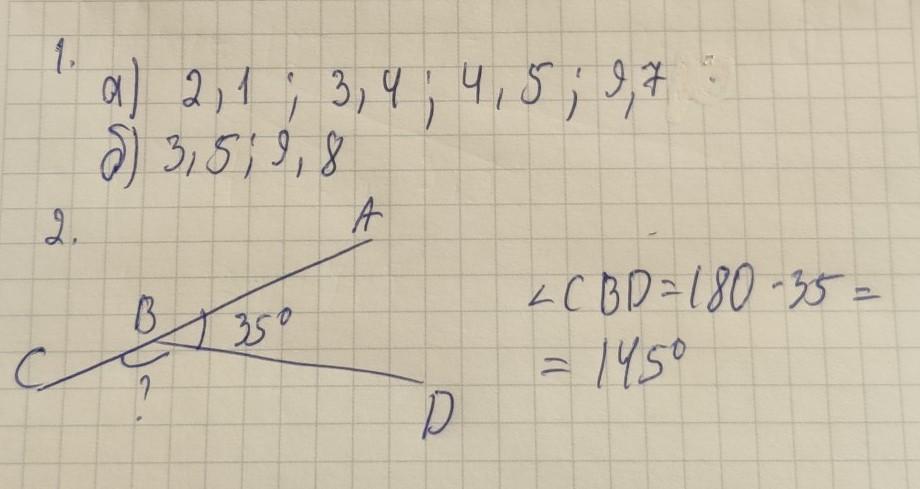 1.
а) 2,1 ; 3,4 ; 4,5 ; 9,7
б) 3,5 ; 9,8
2.
A
B 35°
C
?
D
∠CBD = 180 - 35 =
= 145°